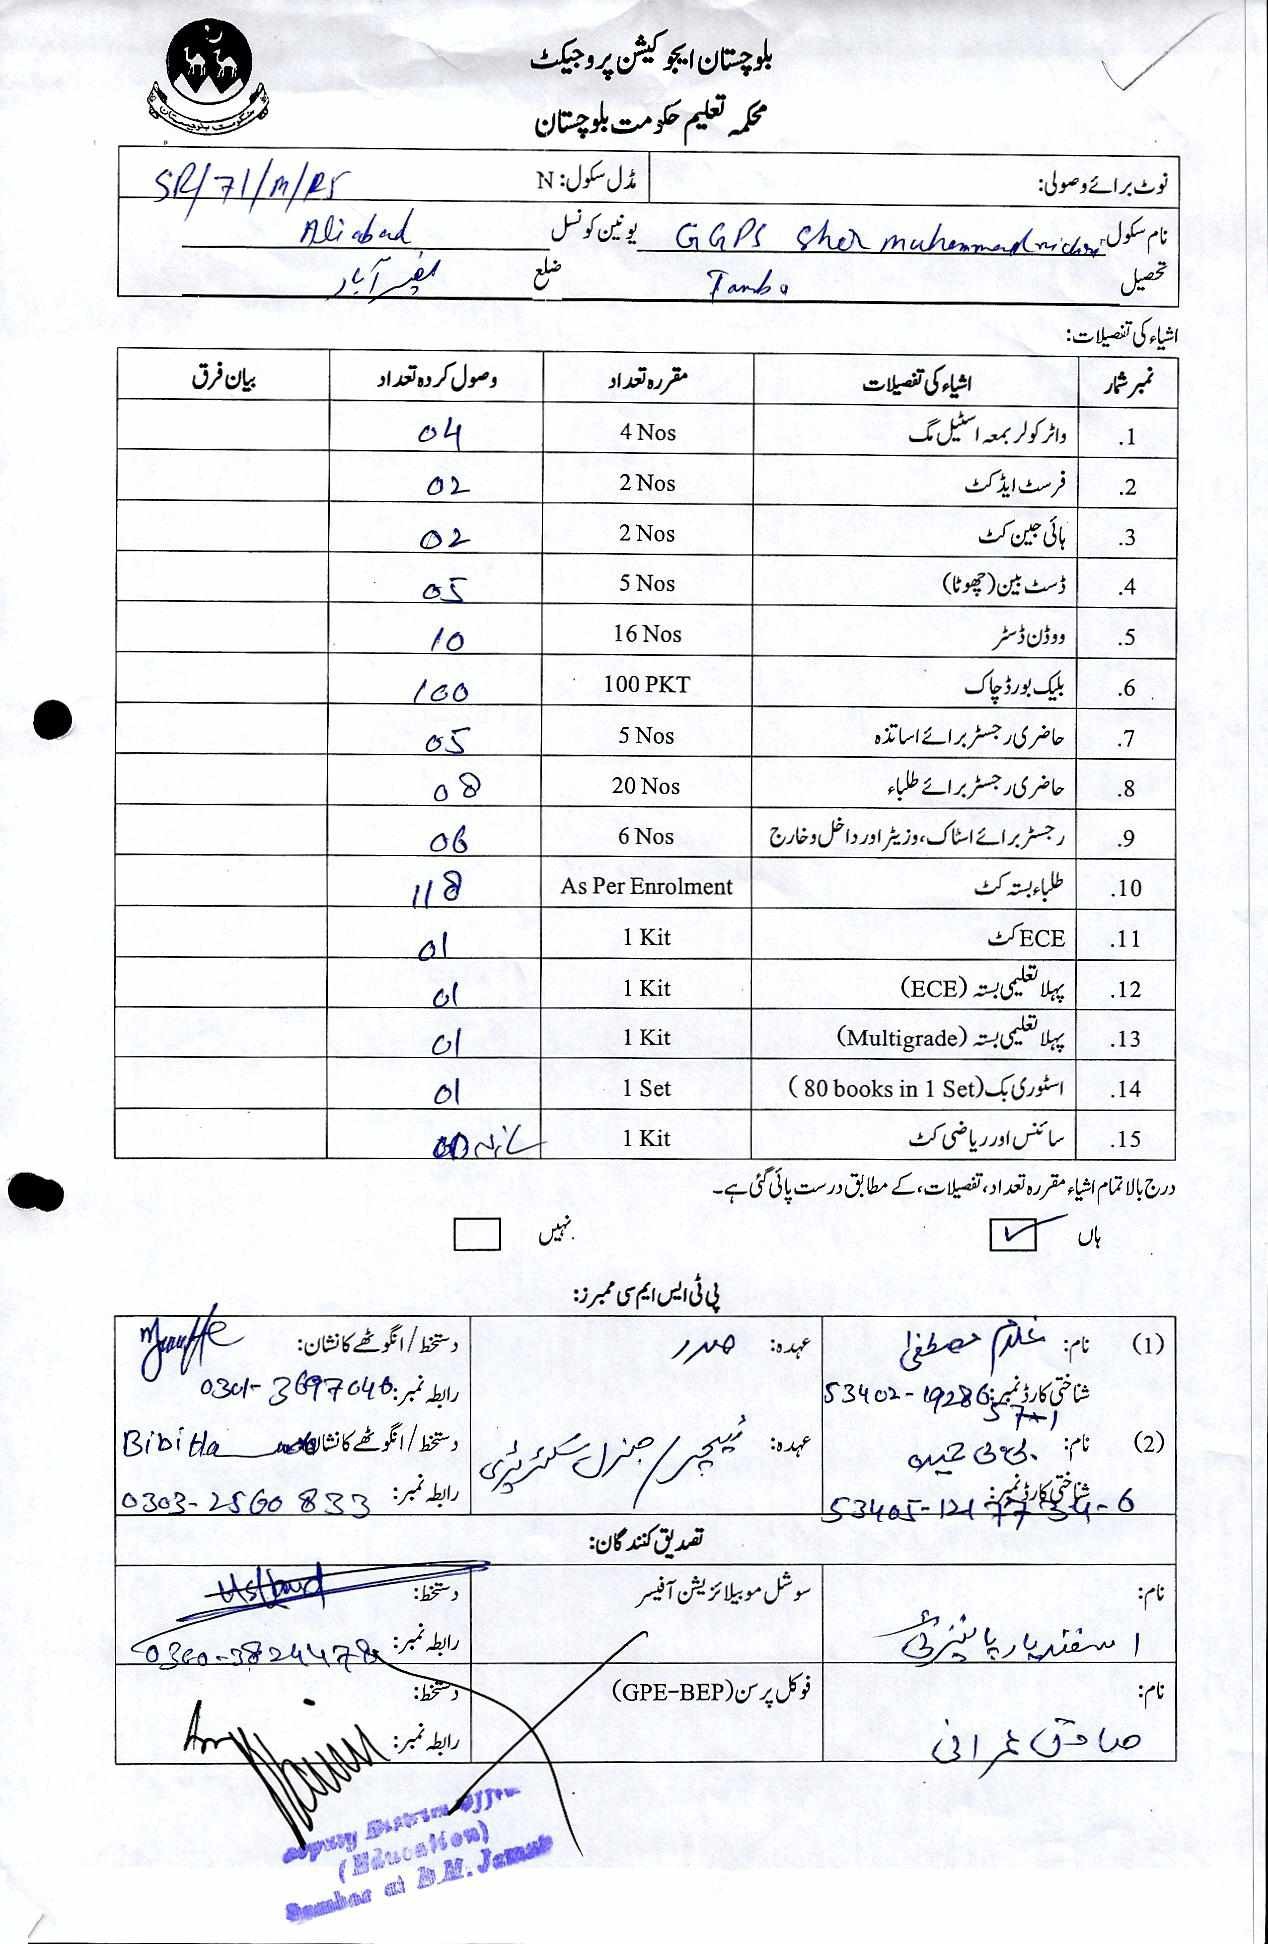 حکومت بلوچستان
بلوچستان ایجوکیشن پروجیکٹ
محکمہ تعلیم حکومت بلوچستان
نوٹ برائے وصولی: مڈل سکول: N SR/71/M/R5
نام سکول: GGPS Sher Muhammad یونین کونسل Aliabad
تحصیل Tambo ضلع نصیر آباد
اشیاء کی تفصیلات:
نمبر شمار اشیاء کی تفصیلات مقررہ تعداد وصول کردہ تعداد بیان فرق
1. واٹر کولر بمعہ اسٹیل مگ 4 Nos 04
2. فرسٹ ایڈ کٹ 2 Nos 02
3. ہائی جین کٹ 2 Nos 02
4. ڈسٹ بین (چھوٹا) 5 Nos 05
5. ووڈن ڈسٹر 16 Nos 10
6. بلیک بورڈ چاک 100 PKT 100
7. حاضری رجسٹر برائے اساتذہ 5 Nos 05
8. حاضری رجسٹر برائے طلباء 20 Nos 08
9. رجسٹر برائے اسٹاک، وزیٹر اور داخل و خارج 6 Nos 06
10. طلباء بستہ کٹ As Per Enrolment 118
11. ECE کٹ 1 Kit 01
12. پہلا تعلیمی بستہ (ECE) 1 Kit 01
13. پہلا تعلیمی بستہ (Multigrade) 1 Kit 01
14. اسٹوری بک (80 books in 1 Set) 1 Set 01
15. سائنس اور ریاضی کٹ 1 Kit Nil
درج بالا تمام اشیاء مقررہ تعداد، تفصیلات، کے مطابق درست پائی گئی ہے۔
ہاں ✓ نہیں
پی ٹی ایس ایم سی ممبرز:
(1) نام: غلام مصطفیٰ عہدہ: صدر دستخط/انگوٹھے کا نشان:
شناختی کارڈ نمبر: 53402-19286 رابطہ نمبر: 0301-3697046
(2) نام: بی بی عہدہ: ٹیچر/جنرل سیکریٹری دستخط/انگوٹھے کا نشان: Bibi
شناختی کارڈ نمبر: 53405-1217734-6 رابطہ نمبر: 0303-2560833
تصدیق کنندگان:
نام: سوشل موبیلائزیشن آفیسر دستخط:
اسفندیار رابطہ نمبر: 0300-3824478
نام: فوکل پرسن (GPE-BEP) دستخط:
صادق عمرانی رابطہ نمبر:
Deputy District Officer
(Education)
at D.M. Jamali